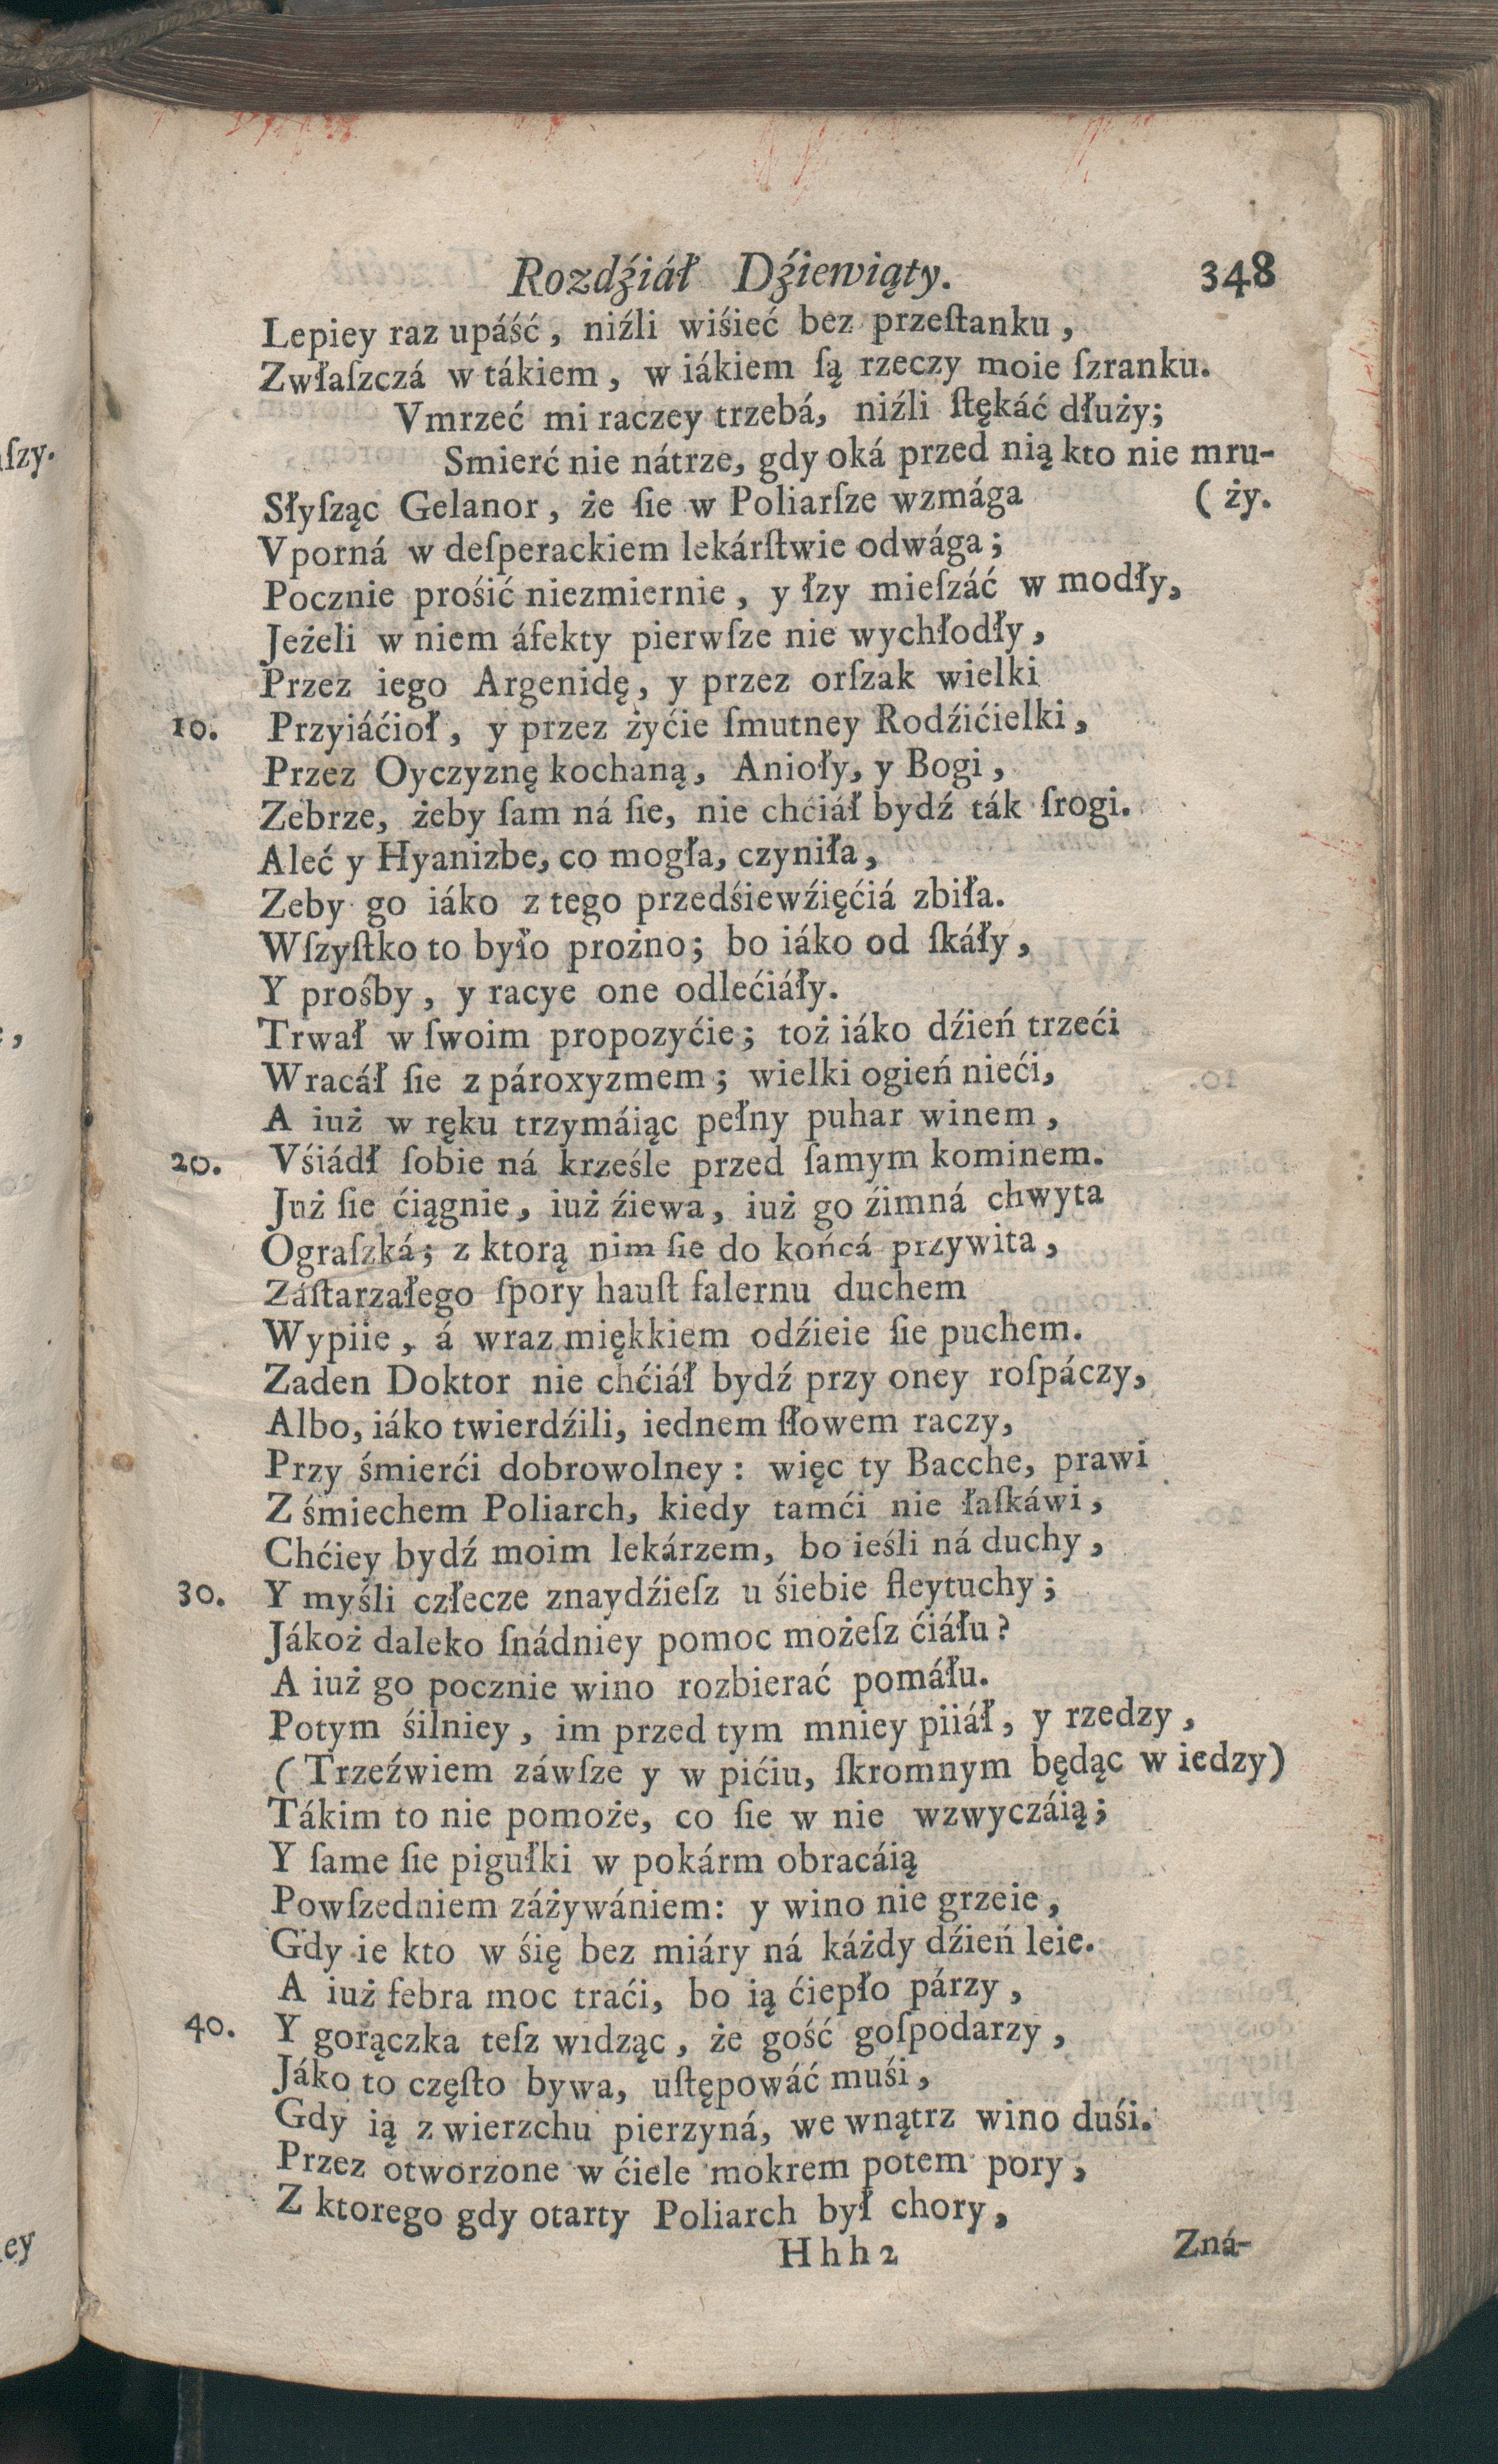 Rozdźiáł Dźiewiąty. 348
Lepiey raz upáść, niźli wiśieć bez przeſtanku,
Zwłaſzczá w tákiem, w iákiem ſą rzeczy moie ſzranku.
Vmrzeć mi raczey trzebá, niźli ſtękáć dłuży;
Smierć nie nátrze, gdy oká przed nią kto nie mru-
Słyſząc Gelanor, że ſie w Poliarſze wzmága (ży.
Vporná w deſperackiem lekárſtwie odwága;
Pocznie prośić niezmiernie, y łzy mieſzáć w modły,
Jeżeli w niem áfekty pierwſze nie wychłodły,
Przez iego Argenidę, y przez orſzak wielki
10. Przyiáćioł, y przez żyćie ſmutney Rodźićielki,
Przez Oyczyznę kochaną, Anioły, y Bogi,
Zebrze, żeby ſam ná ſie, nie chciáł bydź ták ſrogi.
Aleć y Hyanizbe, co mogła, czyniła,
Zeby go iáko z tego przedśiewźięćiá zbiła.
Wſzyſtko to było prożno; bo iáko od ſkáły,
Y prośby, y racye one odlećiáły.
Trwał w ſwoim propozyćie; toż iáko dźień trzeći
Wracáł ſie z pároxyzmem; wielki ogień nieći,
A iuż w ręku trzymáiąc pełny puhar winem,
20. Vśiádł ſobie ná krześle przed ſamym kominem.
Już ſie ćiągnie, iuż źiewa, iuż go źimná chwyta
Ograſzká; z ktorą nim ſie do końcá przywita,
Záſtarzałego ſpory hauſt falernu duchem
Wypiie, á wraz miękkiem odźieie ſie puchem.
Zaden Doktor nie chćiáł bydź przy oney roſpáczy,
Albo, iáko twierdźili, iednem ſłowem raczy,
Przy śmierći dobrowolney: więc ty Bacche, prawi
Z śmiechem Poliarch, kiedy tamći nie łaſkáwi,
Chćiey bydź moim lekárzem, bo ieśli ná duchy,
30. Y myśli człecze znaydźieſz u śiebie fleytuchy;
Jákoż daleko ſnádniey pomoc możeſz ćiáłu?
A iuż go pocznie wino rozbierać pomáłu.
Potym śilniey, im przed tym mniey piiáł, y rzedzy,
(Trzeźwiem záwſze y w pićiu, ſkromnym będąc w iedzy)
Tákim to nie pomoże, co ſie w nie wzwyczáią;
Y ſame ſie pigułki w pokárm obracáią
Powſzedniem záżywániem: y wino nie grzeie,
Gdy ie kto w śię bez miáry ná káżdy dźień leie.
A iuż febra moc traći, bo ią ćiepło párzy,
40. Y gorączka teſz widząc, że gość goſpodarzy,
Jáko to częſto bywa, uſtępowáć muśi,
Gdy ią z wierzchu pierzyná, we wnątrz wino duśi.
Przez otworzone w ćiele mokrem potem pory,
Z ktorego gdy otarty Poliarch był chory,
Hhh2 Zná-